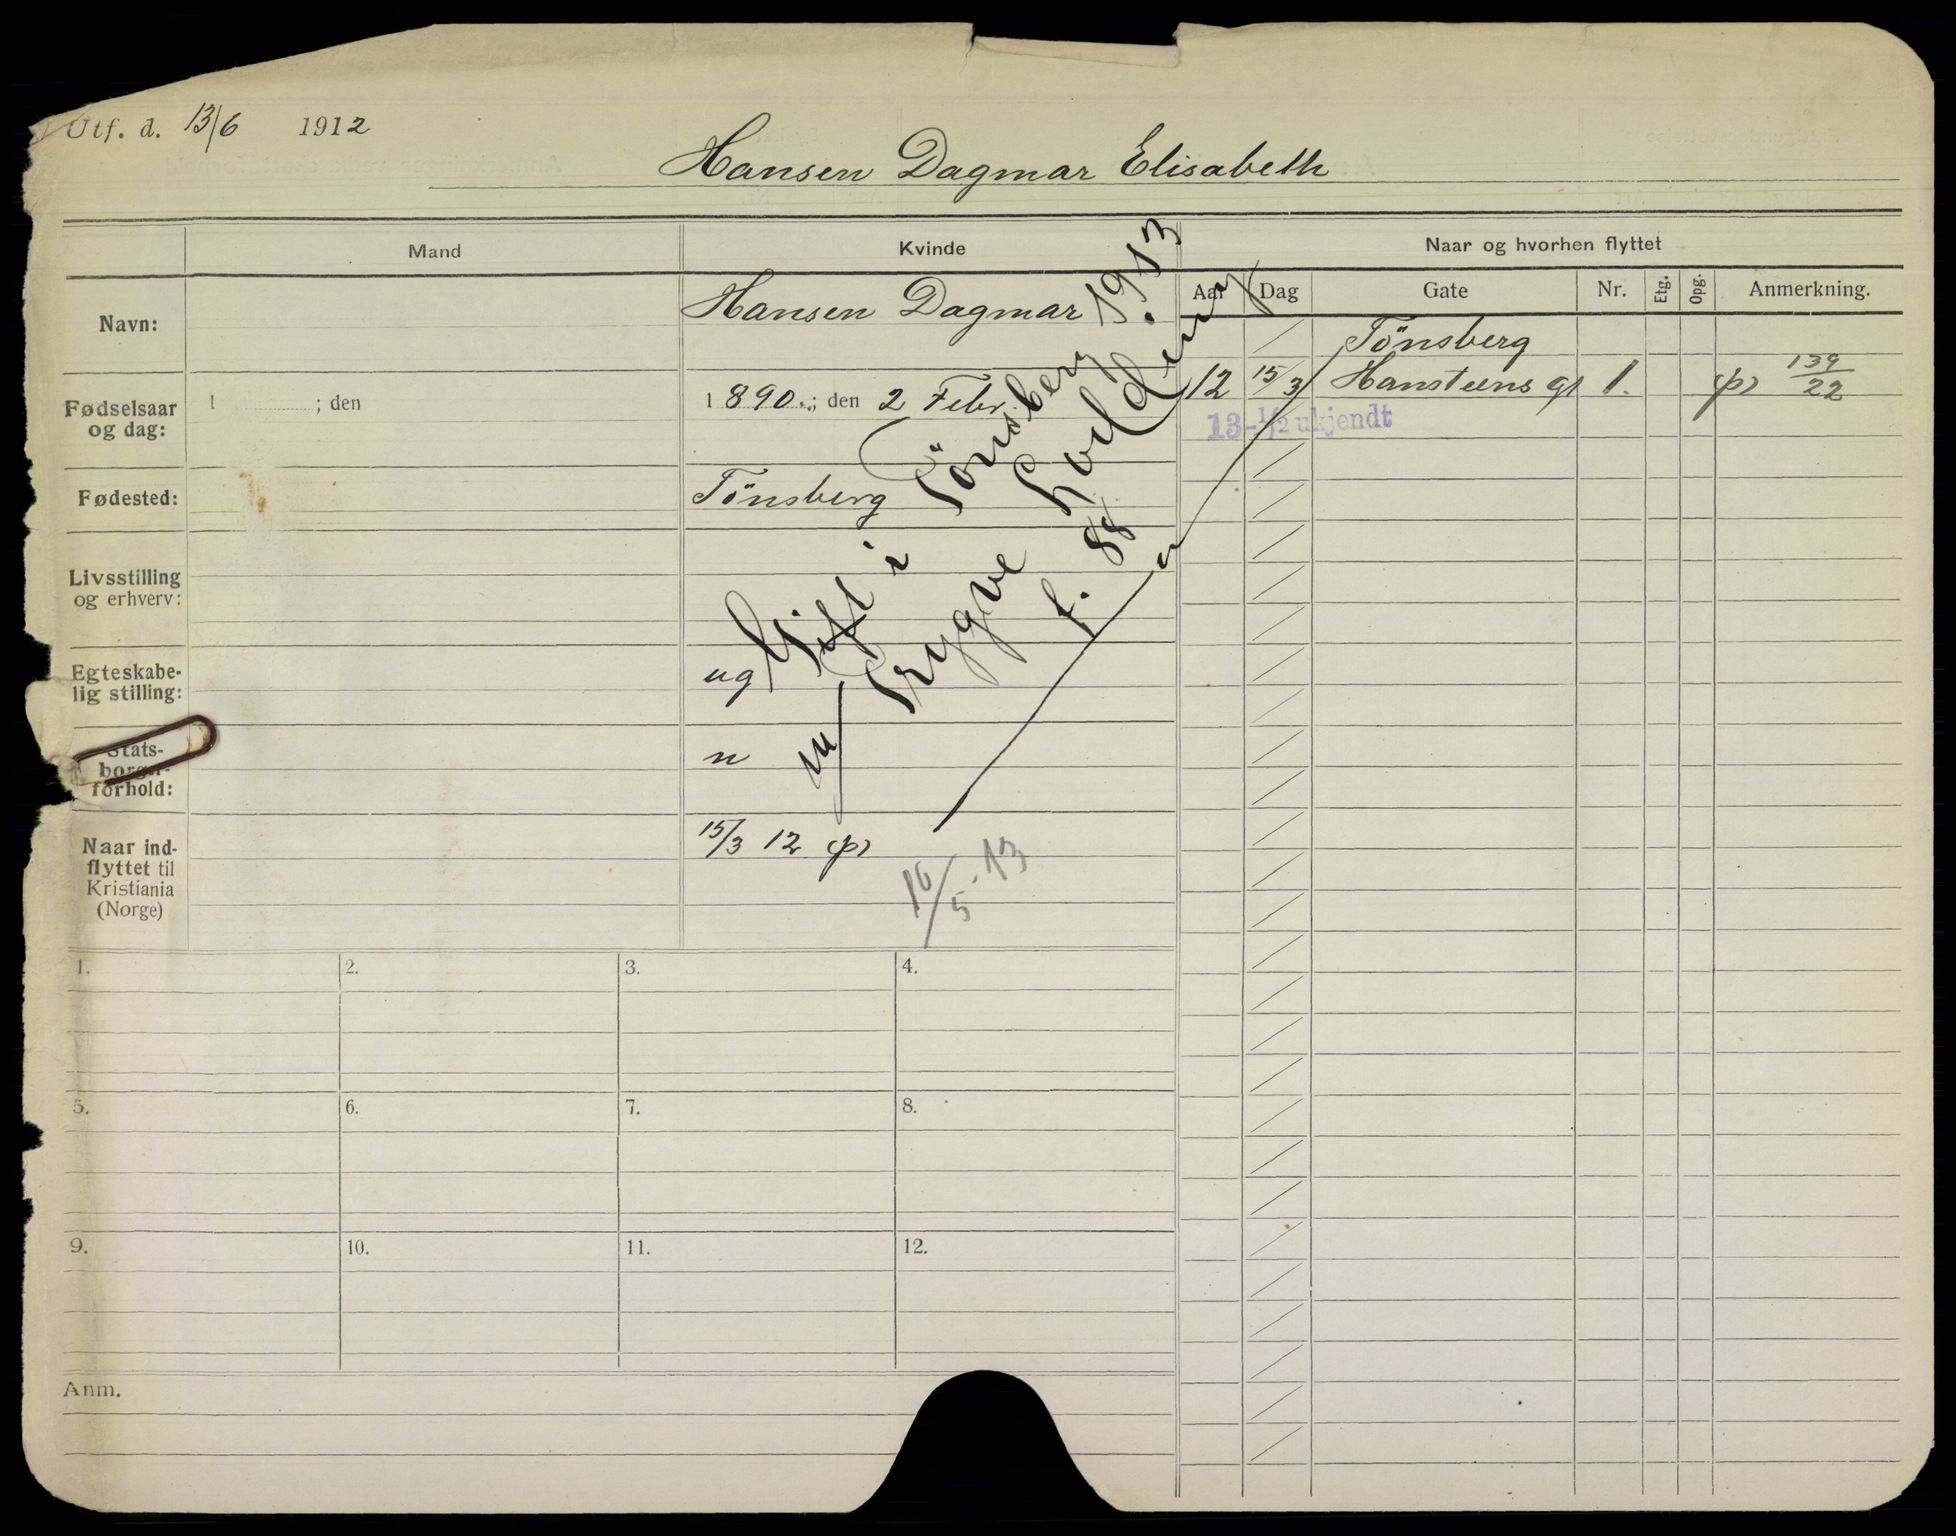 Utf. d. 13/6 1912
Hansen Dagmar Elisabeth
Mand
Kvinde
Naar og hvorhen flyttet
Aar
Dag
Gate
Nr.
Etg.
Opg.
Anmerkning.
Navn:
Hansen Dagmar
Tönsberg
12 15/3 Hansteens gt 1. (p) 139/22
13-1/2 ukjendt
Fødselsaar
og dag:
1 ; den
1890.; den 2 Febr.
Fødested:
Tönsberg
Livsstilling
og erhverv:
Egteskabe-
lig stilling:
ug
Gift i Tönsberg 1913
m/ Trygve
f. 88
Stats-
borger-
forhold:
n
Naar ind-
flyttet til
Kristiania
(Norge)
15/3 12 (p)
16/5.13
1.
2.
3.
4.
5.
6.
7.
8.
9.
10.
11.
12.
Anm.